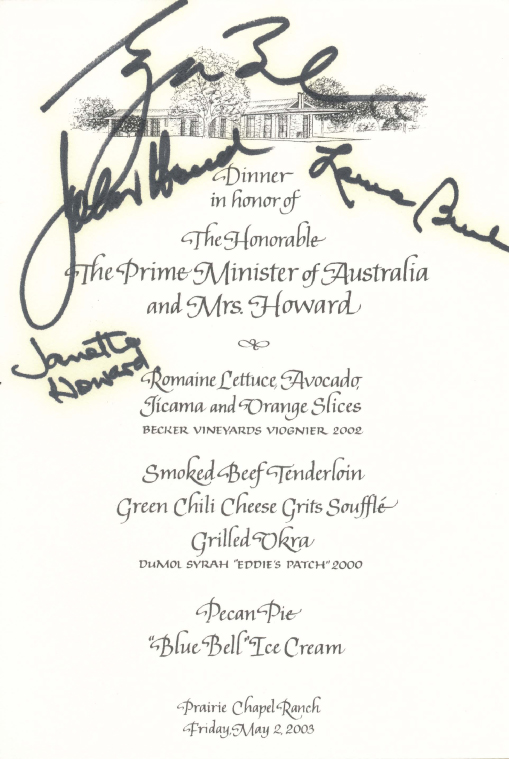 John Howard
Laura Bush
Dinner
in honor of
The Honorable
The Prime Minister of Australia
and Mrs. Howard
Janette
Howard
Romaine Lettuce, Avocado,
Jicama and Orange Slices
BECKER VINEYARDS VIOGNIER 2002
Smoked Beef Tenderloin
Green Chili Cheese Grits Soufflé
Grilled Okra
DUMOL SYRAH "EDDIE'S PATCH" 2000
Pecan Pie
"Blue Bell" Ice Cream
Prairie Chapel Ranch
Friday, May 2, 2003